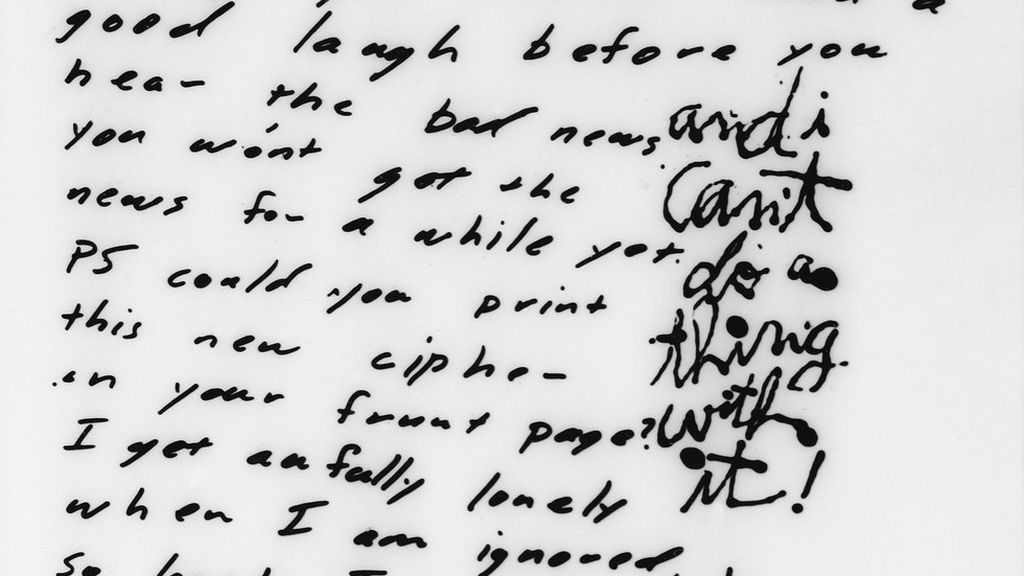 good laugh before you
hear the bad news
you won't get the
news for a while yet.
PS could you print
this new cipher
in your frunt page?
I get aufully lonely
when I am ignored
and i
can't
do a
thing
with
it!